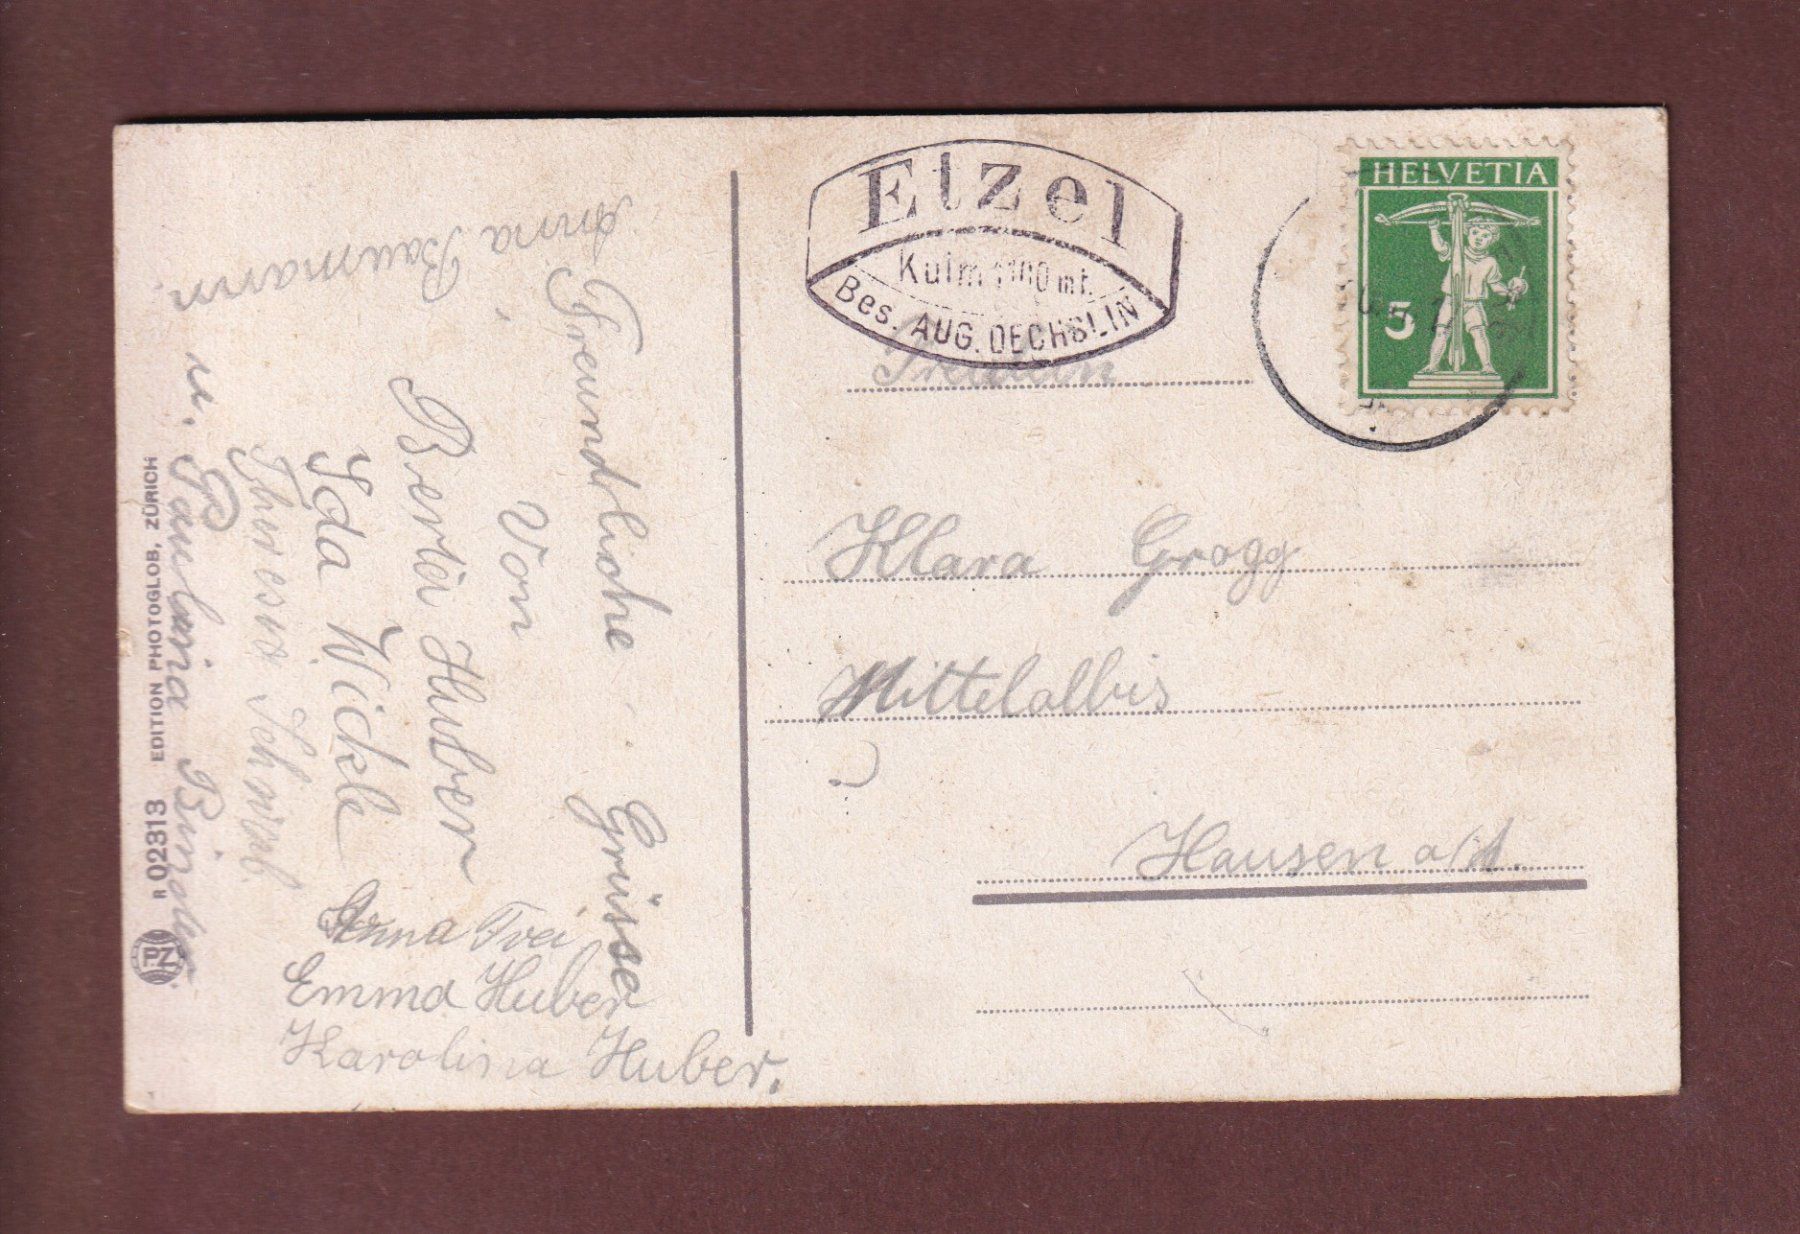 Freundliche Grüsse
Von
Berta Huber
Ida Wickle
Theresa
u. Paulina
Anna Baumann
Anna Frei
Emma Huber
Karolina Huber.
EDITION PHOTOGLOB, ZÜRICH
02313
PZ
Etzel
Kulm 1100 mt.
Bes. AUG. OECHSLIN
HELVETIA
5
Fräulein
Klara Grogg
Mittelalbis
Hausen a/A.